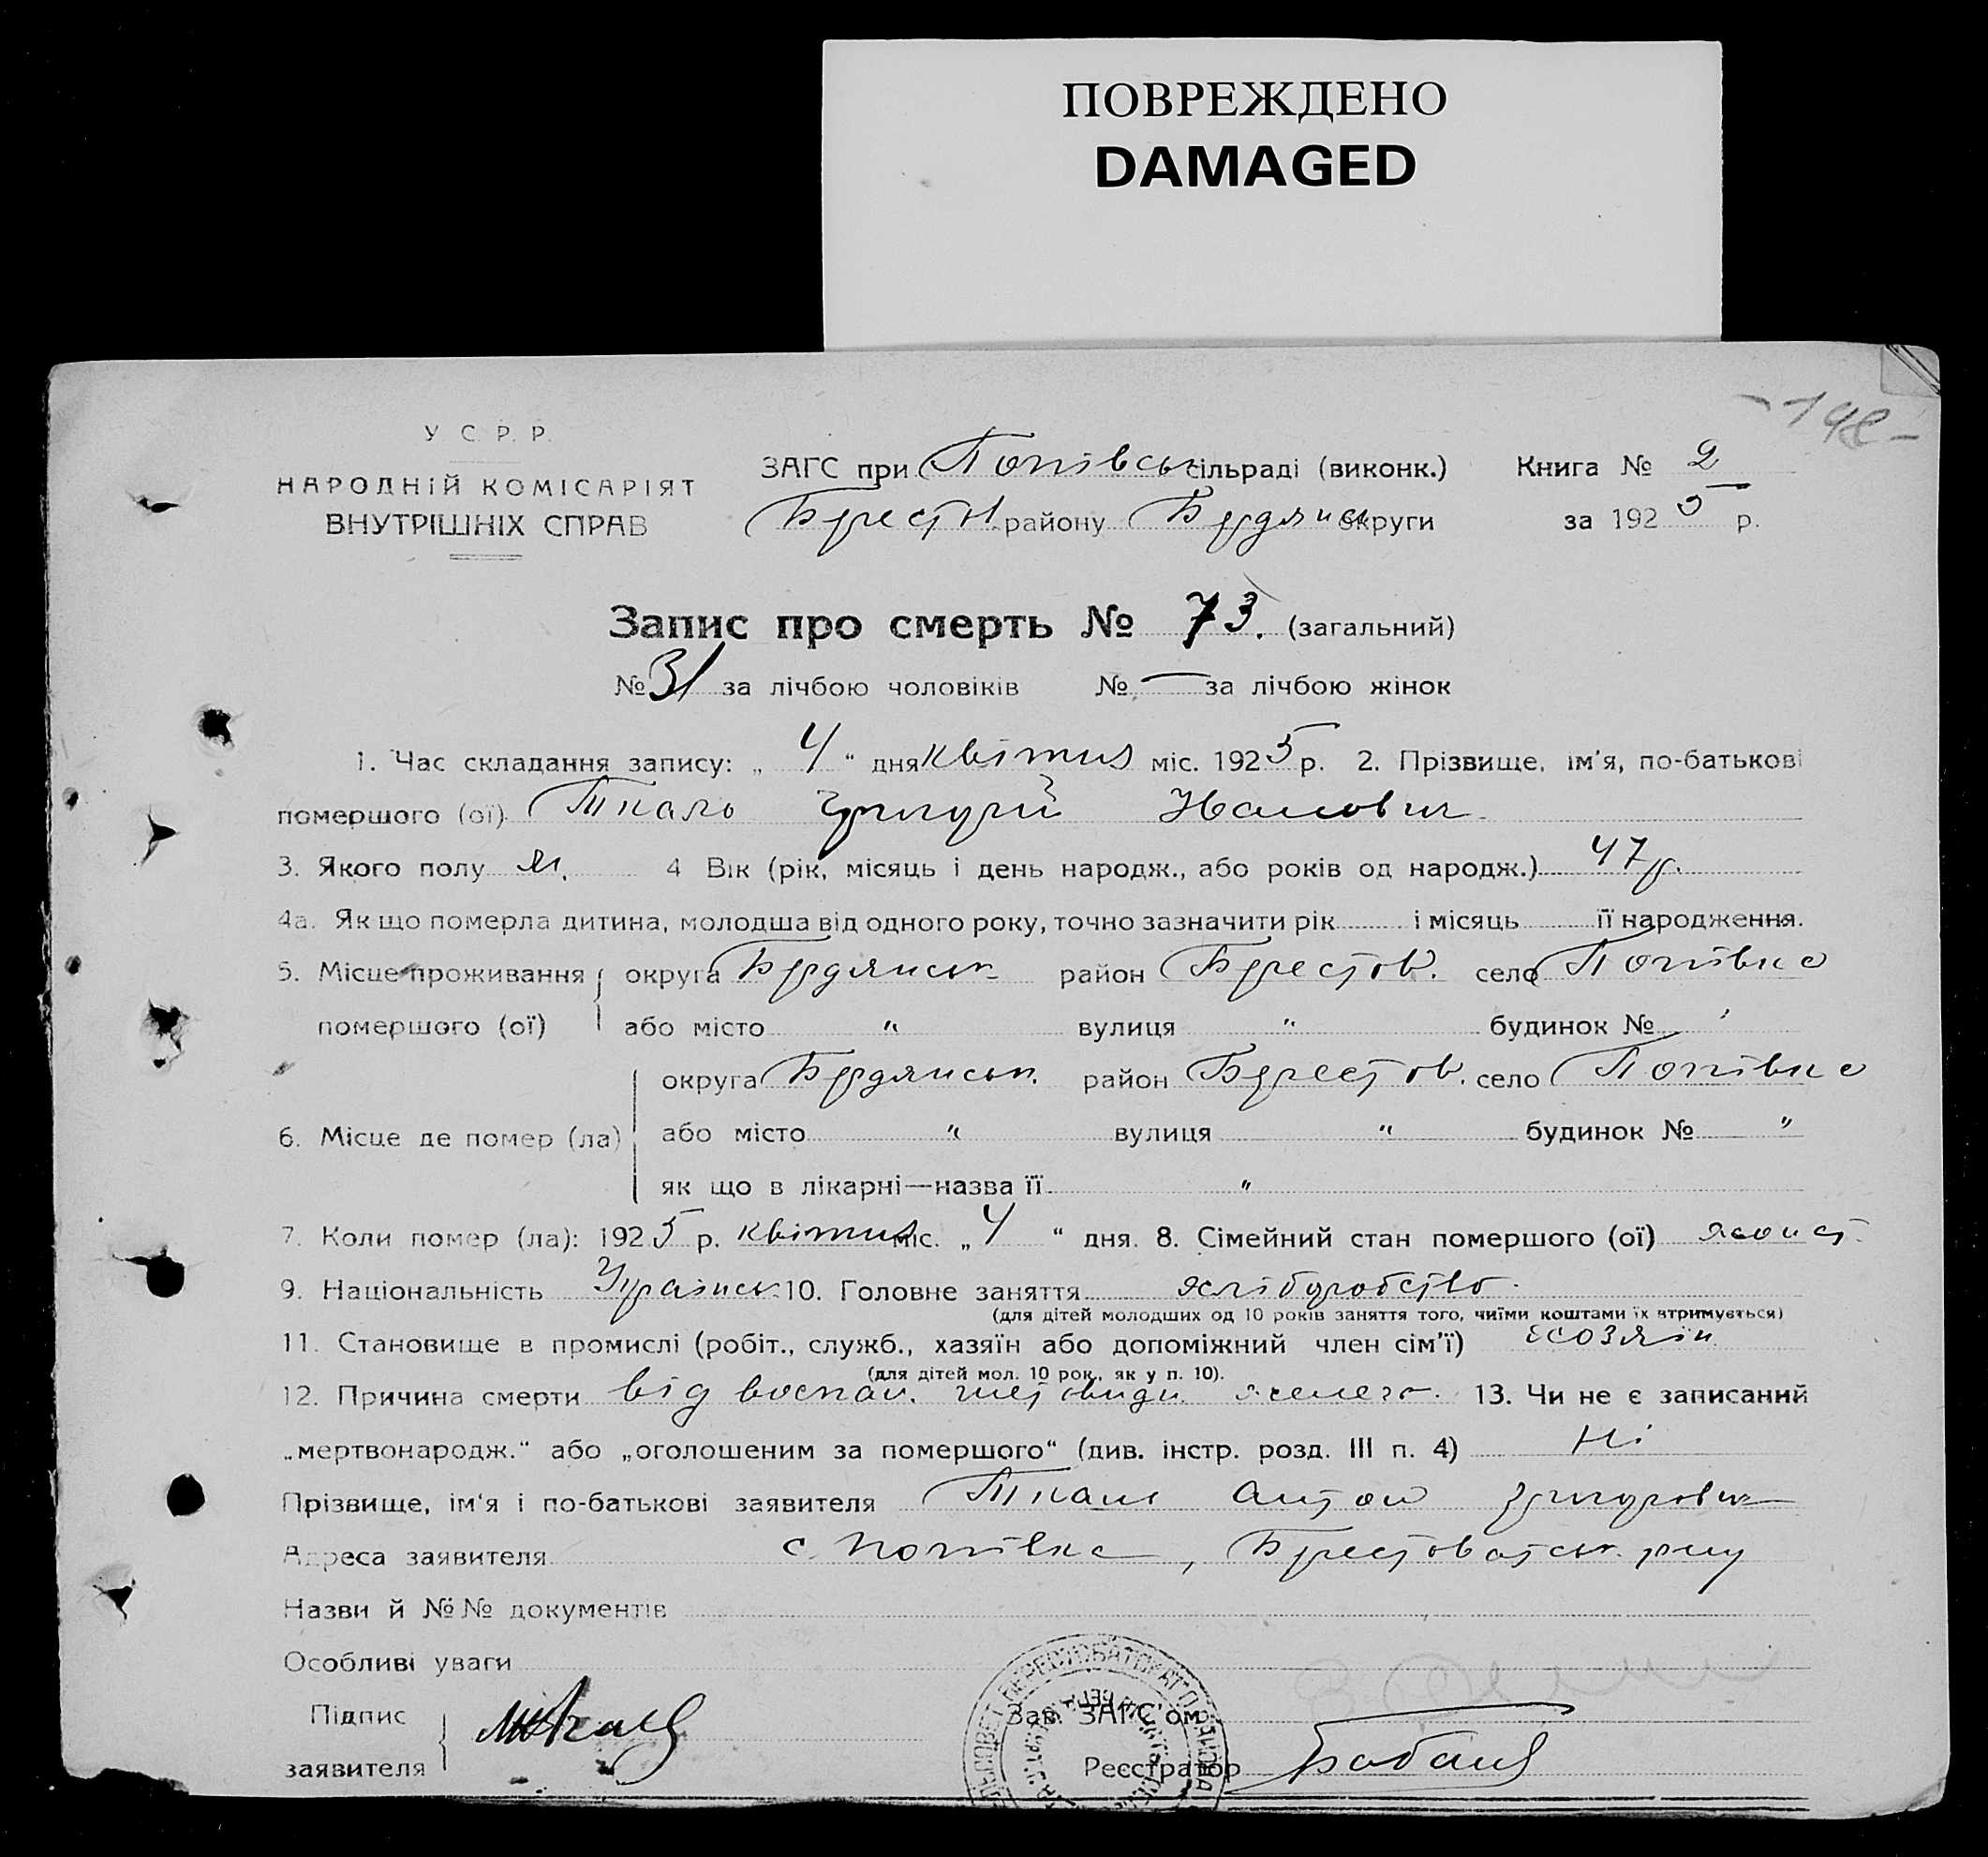 ПОВРЕЖДЕНО
DAMAGED
198-
У С. Р. Р.
НАРОДНІЙ КОМІСАРІЯТ
ВНУТРІШНІХ СПРАВ
ЗАГС при Попівськ сільраді (виконк.) Книга № 2
Берестов району Бердянськ округи за 1925 р.
Запис про смерть № 73. (загальний)
№ 31 за лічбою чоловіків № — за лічбою жінок
1. Час складання запису: „ 4 “ дня квітня міс. 1925 р. 2. Прізвище, ім'я, по-батькові
помершого (ої) Ткаль Григорій Іванович
3. Якого полу м. 4 Вік (рік, місяць і день народж., або років од народж.) 47 р.
4а. Як що померла дитина, молодша від одного року, точно зазначити рік і місяць її народження.
5. Місце проживання округа Бердянськ район Берестов. село Попівка
помершого (ої) або місто " вулиця " будинок №
округа Бердянськ. район Берестов. село Попівка
6. Місце де помер (ла) або місто " вулиця " будинок № "
як що в лікарні—назва її "
7. Коли помер (ла): 1925 р. квітня міс. „ 4 “ дня. 8. Сімейний стан помершого (ої)
9. Національність Українськ 10. Головне заняття хліборобство
(для дітей молодших од 10 років заняття того, чиїми коштами їх втримується)
11. Становище в промислі (робіт., служб., хазяїн або допоміжний член сім'ї) хозяїн
(для дітей мол. 10 рок., як у п. 10).
12. Причина смерти від воспал. щетовидн. железо. 13. Чи не є записаний
„мертвонародж.“ або „оголошеним за помершого“ (див. інстр. розд. III п. 4) Ні
Прізвище, ім'я і по-батькові заявителя Ткаль Антон Григорович
Адреса заявителя с. Попівка, Берестоватськ. р-ну
Назви й №№ документів
Особливі уваги
Підпис
заявителя
Зав. ЗАГС'ом
Реєстратор